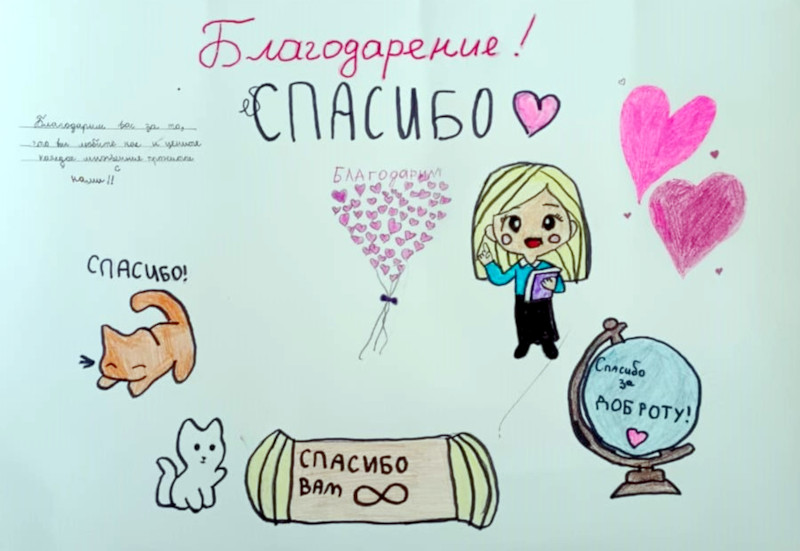 Благодарение!
СПАСИБО
Благодарим вас за то,
что вы любите нас и цените
каждое
с
нами!!
Благодарим
СПАСИБО!
Спасибо
за
ДОБРОТУ!
СПАСИБО
ВАМ